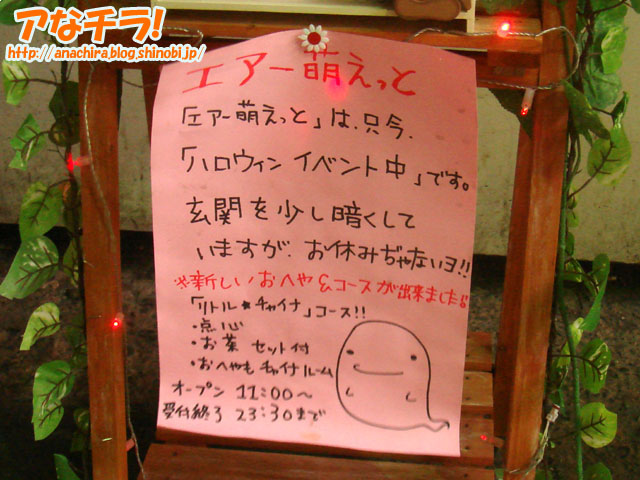 アなチラ!
http://anachira.blog.shinobi.jp/
エアー萌えっと
「エアー萌えっと」は、只今、
「ハロウィン イベント中」です。
玄関を少し暗くして
いますが、お休みぢゃないヨ!!
※新しいおへや&コースが出来ました。
「リトル★チャイナ」コース!!
・点心
・お茶 セット付
・おへやもチャイナルーム
オープン 11:00〜
受付終了 23:30まで